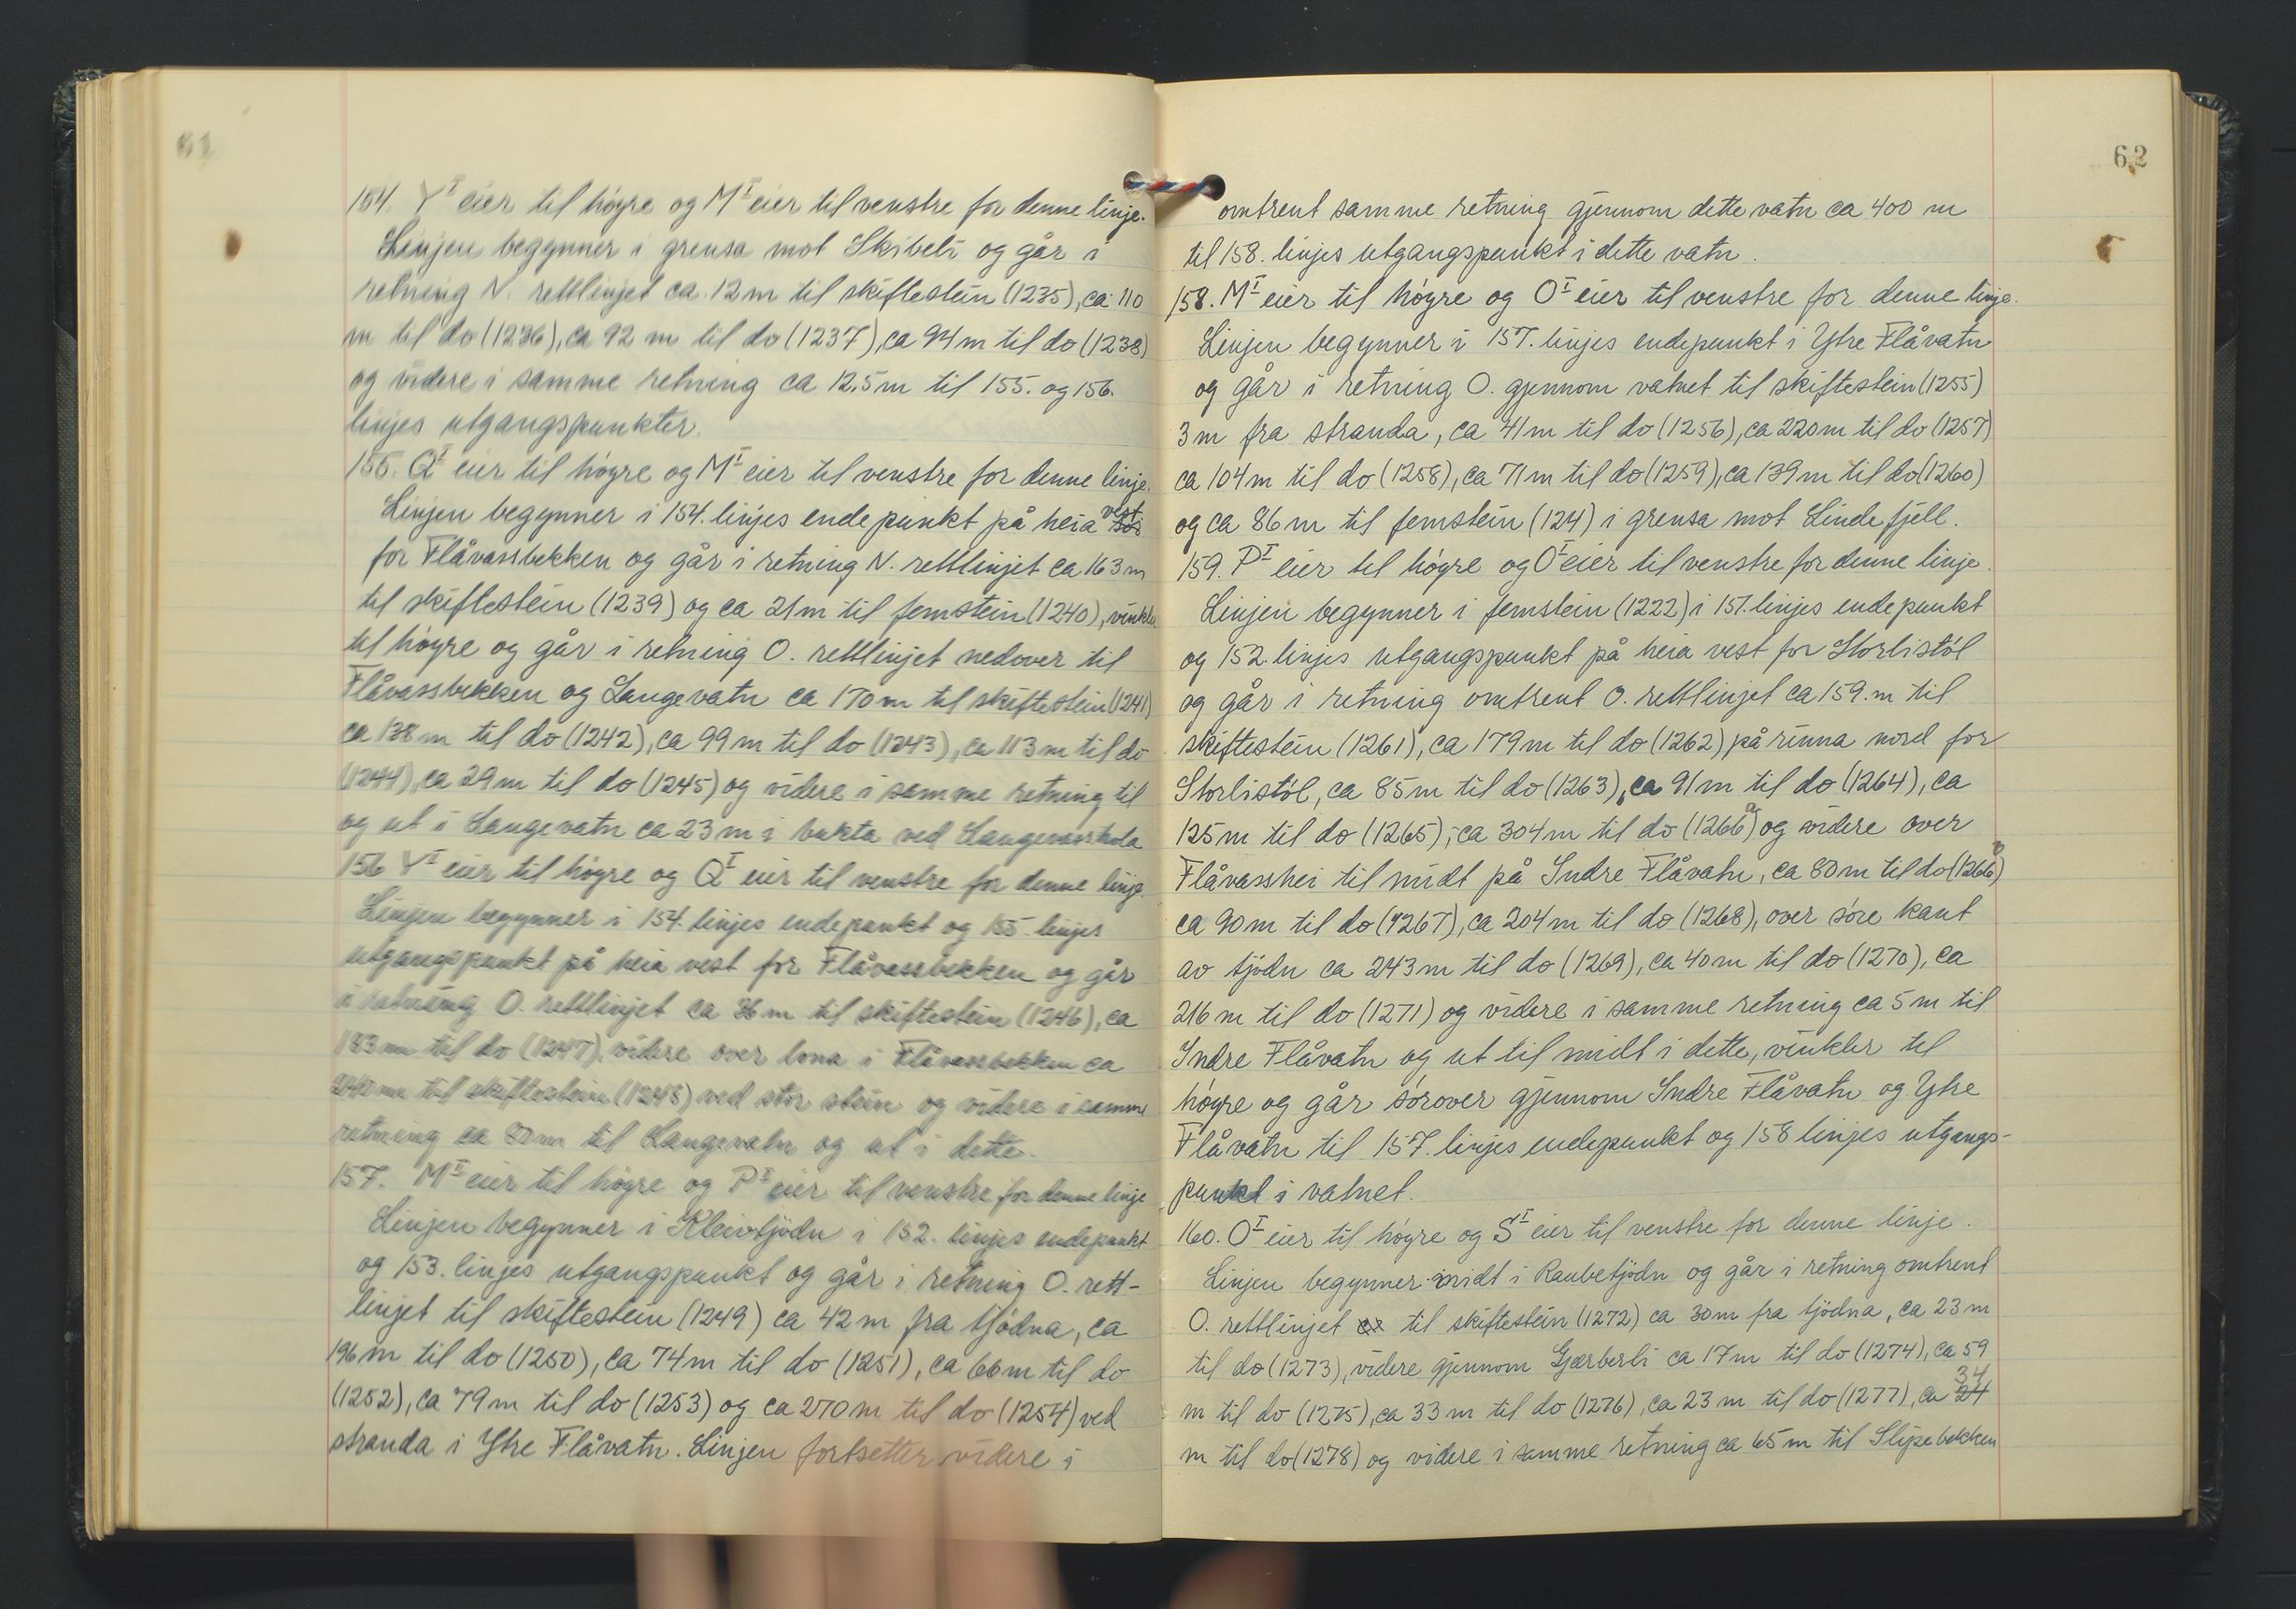 61
154. Y^I eier til høgre og M^I eier til venstre for denne linje.
Linjen begynner i grensa mot Skibeli og går i
retning N. rettlinjet ca. 12 m til skiftestein (1235), ca 110
m til do (1236), ca 92 m til do (1237), ca 94 m til do (1238)
og videre i samme retning ca 12,5 m til 155. og 156.
linjes utgangspunkter.
155. Q^I eier til høgre og M^I eier til venstre for denne linje.
Linjen begynner i 154. linjes endepunkt på heia vest
for Flåvassbekken og går i retning N. rettlinjet ca 163 m
til skiftestein (1239) og ca 21 m til femstein (1240), vinkler
til høgre og går i retning O. rettlinjet nedover til
Flåvassbekken og Langevatn ca 170 m til skiftestein (1241)
ca 138 m til do (1242), ca 99 m til do (1243), ca 113 m til do
(1244), ca 29 m til do (1245) og videre i samme retning til
og ut i Langevatn ca 23 m i bukta ved
156 Y^I eier til høgre og Q^I eier til venstre for denne linje.
Linjen begynner i 154. linjes endepunkt og 155. linjes
utgangspunkt på heia vest for Flåvassbekken og går
i retning O. rettlinjet ca 36 m til skiftestein (1246), ca
183 m til do (1247), videre over lona i Flåvassbekken ca
m til skiftestein (1248) ved stor stein og videre i samme
retning ca m til Langevatn og ut i dette.
157. M^I eier til høgre og P^I eier til venstre for denne linje
Linjen begynner i Kleivtjödn i 152. linjes endepunkt
og 153. linjes utgangspunkt og går i retning O. rett-
linjet til skiftestein (1249) ca 42 m fra tjödna, ca
196 m til do (1250), ca 74 m til do (1251), ca 66 m til do
(1252), ca 79 m til do (1253) og ca 270 m til do (1254) ved
stranda i Ytre Flåvatn. Linjen fortsetter videre i
62
omtrent samme retning gjennom dette vatn ca 400 m
til 158. linjes utgangspunkt i dette vatn.
158. M^I eier til høgre og O^I eier til venstre for denne linje.
Linjen begynner i 157. linjes endepunkt i Ytre Flåvatn
og går i retning O. gjennom vatnet til skiftestein (1255)
3 m fra stranda, ca 41 m til do (1256), ca 220 m til do (1257)
ca 104 m til do (1258), ca 71 m til do (1259), ca 139 m til do (1260)
og ca 86 m til femstein (124) i grensa mot Lindefjell.
159. P^I eier til høgre og O^I eier til venstre for denne linje.
Linjen begynner i femstein (1222) i 151. linjes endepunkt
og 152. linjes utgangspunkt på heia vest for Storlistöl
og går i retning omtrent O. rettlinjet ca 159. m til
skiftestein (1261), ca 179 m til do (1262) på rinna nord for
Storlistöl, ca 85 m til do (1263), ca 91 m til do (1264), ca
125 m til do (1265), ca 304 m til do (1266^a) og videre over
Flåvasshei til midt på Indre Flåvatn, ca 80 m til do (1266^b)
ca 90 m til do (1267), ca 204 m til do (1268), over söre kant
av tjödn ca 243 m til do (1269), ca 40 m til do (1270), ca
216 m til do (1271) og videre i samme retning ca 5 m til
Indre Flåvatn og ut til midt i dette, vinkler til
høgre og går sörover gjennom Indre Flåvatn og Ytre
Flåvatn til 157. linjes endepunkt og 158 linjes utgangs-
punkt i vatnet.
160. O^I eier til høgre og S^I eier til venstre for denne linje.
Linjen begynner midt i Raubetjödn og går i retning omtrent
O. rettlinjet til skiftestein (1272) ca 30 m fra tjödna, ca 23 m
til do (1273), videre gjennom Gjærberli ca 17 m til do (1274), ca 59
m til do (1275), ca 33 m til do (1276), ca 23 m til do (1277), ca 34
m til do (1278) og videre i samme retning ca 65 m til Slipebekken